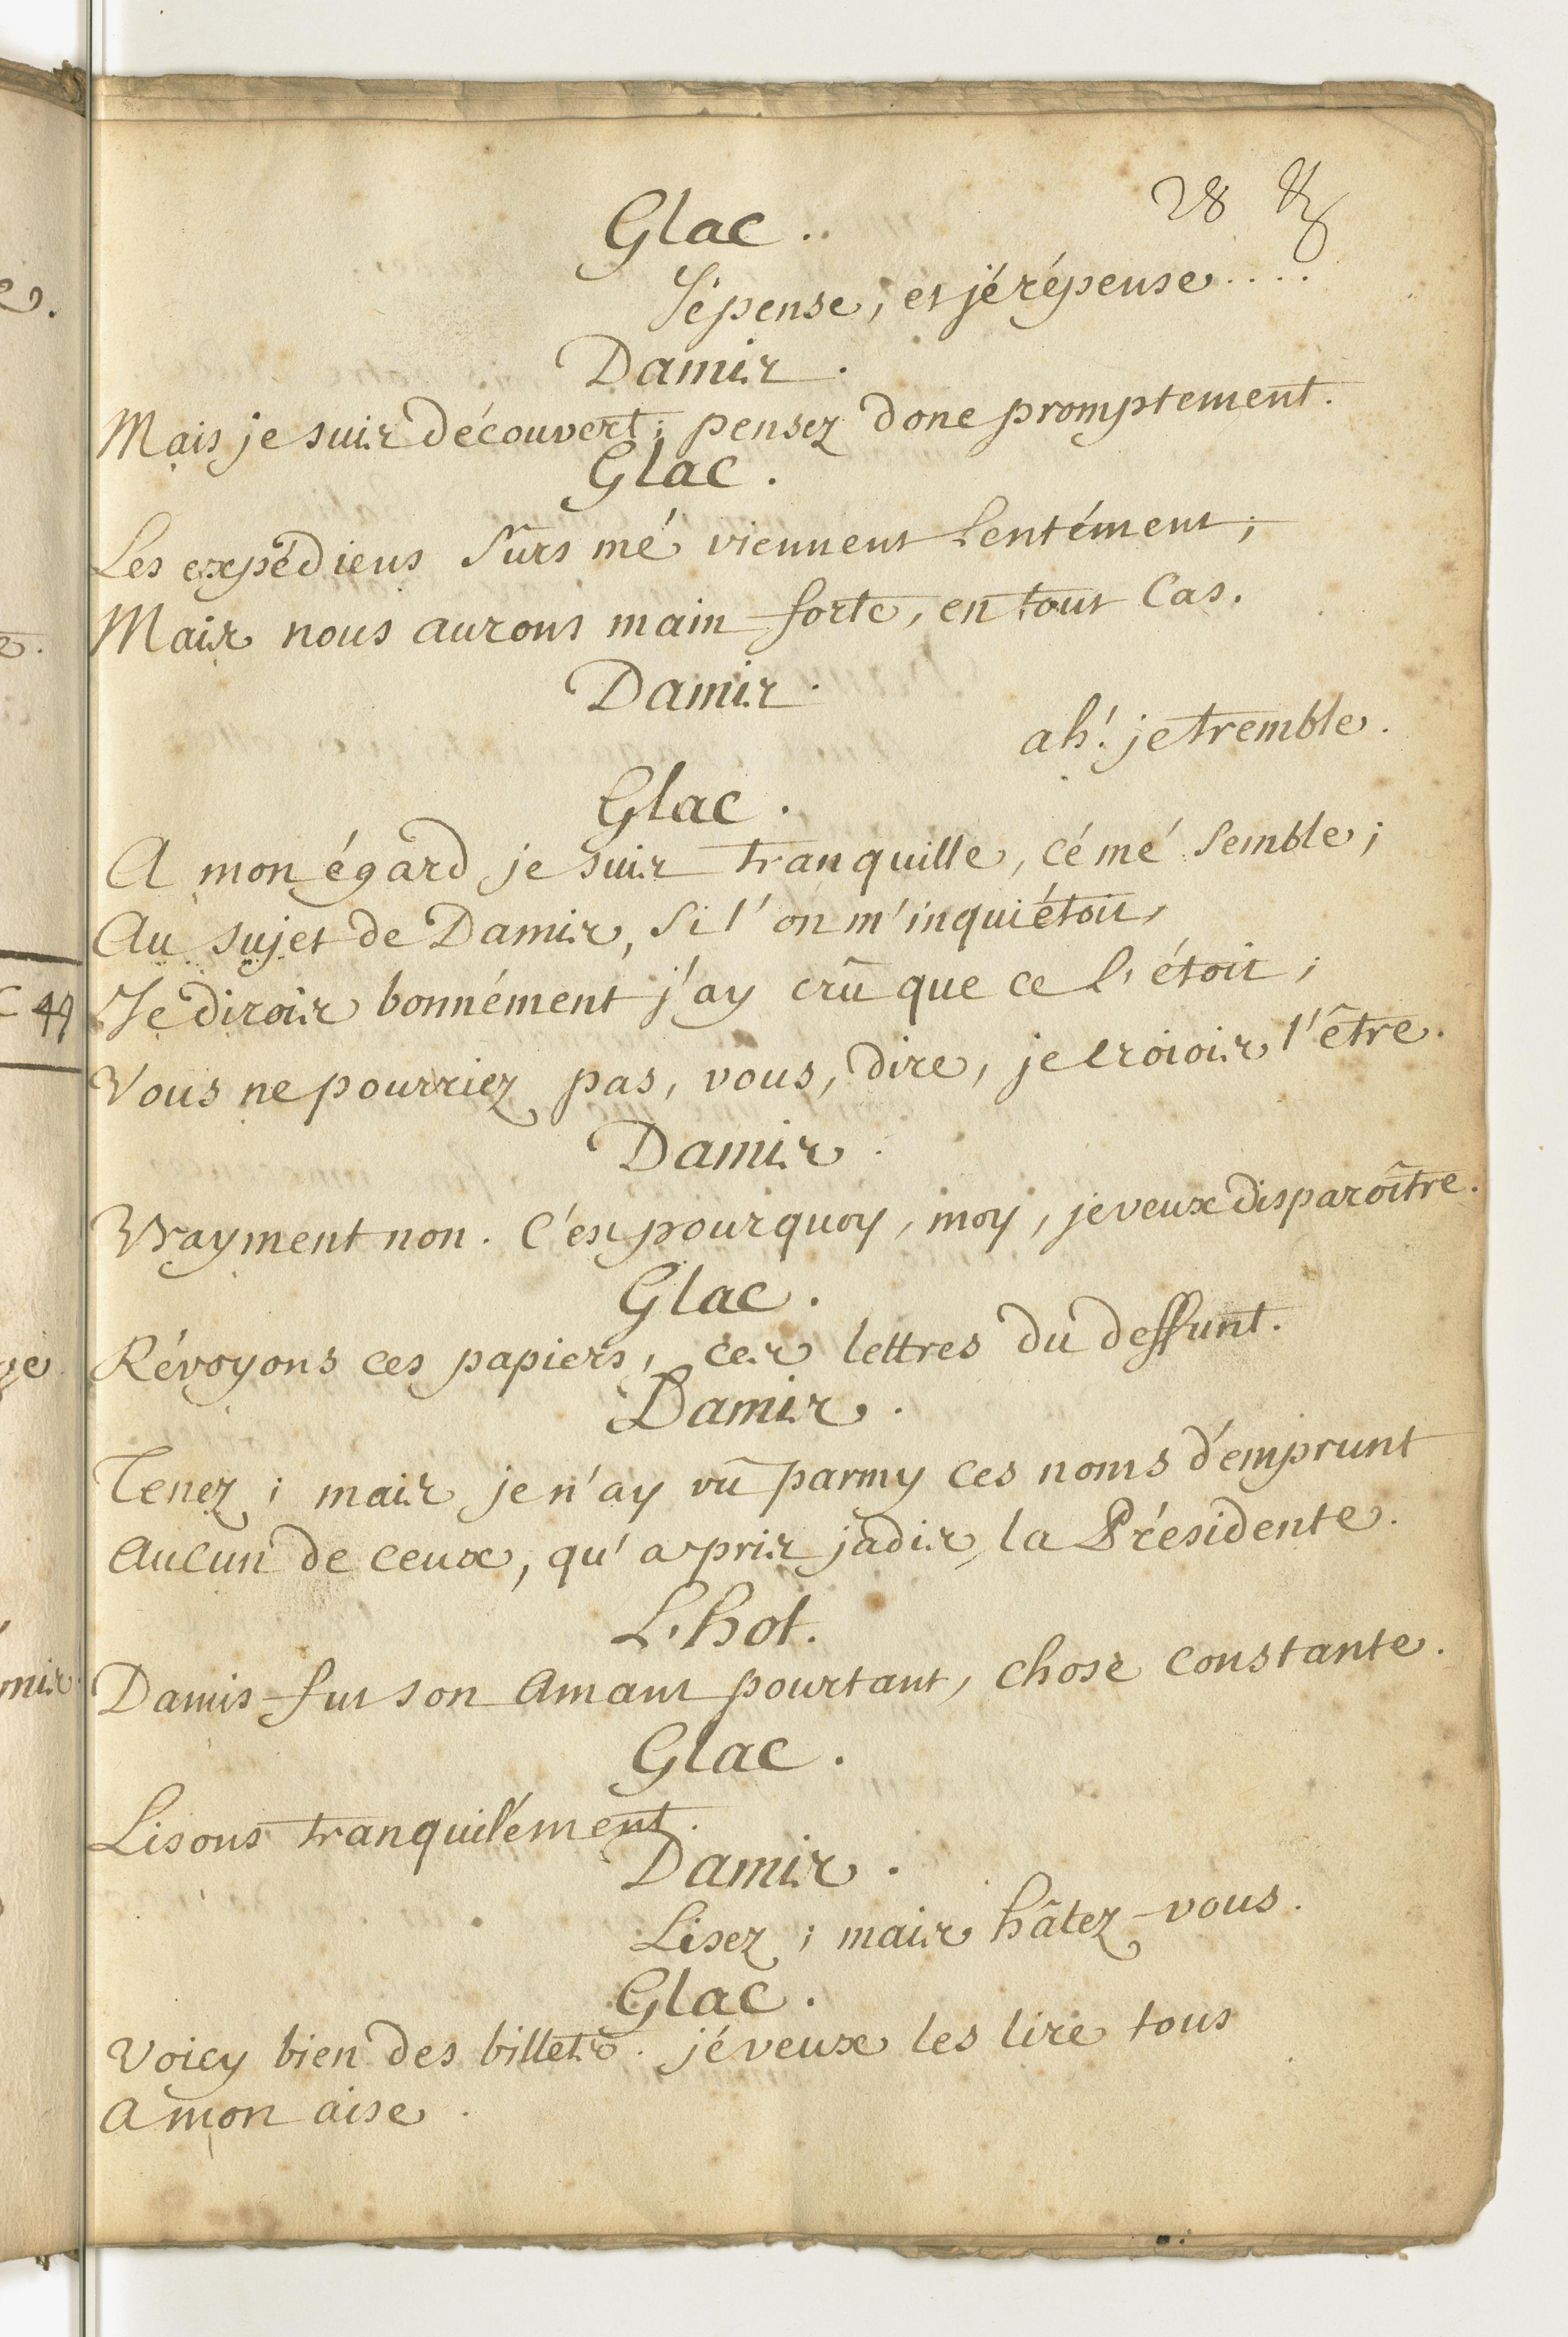 28
Glac..
Jé pense, et jé répense....
Damis.
Mais je suis découvert; pensez donc promptement.
Glac.
Les expédiens sûrs mé viennent lentément;
Mais nous aurons main forte, en tout cas.
Damis.
ah! je tremble.
Glac.
A mon égard je suis tranquille, cé mé semble;
Au sujet de Damis, si l'on m'inquiétoit,
Je dirois bonnément j'ay crû que ce l'étoit;
Vous ne pourriez pas, vous, dire, je croiois l'être.
Damis.
Vrayment non. C'est pourquoy, moy, je veux disparoître.
Glac.
Révoyons ces papiers, ces lettres du deffunt.
Damis.
Tenez; mais je n'ay vû parmy ces noms d'emprunt
Aucun de ceux, qu'a pris jadis la Présidente.
L'hot.
Damis fut son Amant pourtant, chose constante.
Glac.
Lisons tranquilément.
Damis.
Lisez; mais hâtez-vous.
Glac.
Voicy bien des billets. jé veux les lire tous
A mon aise.
49